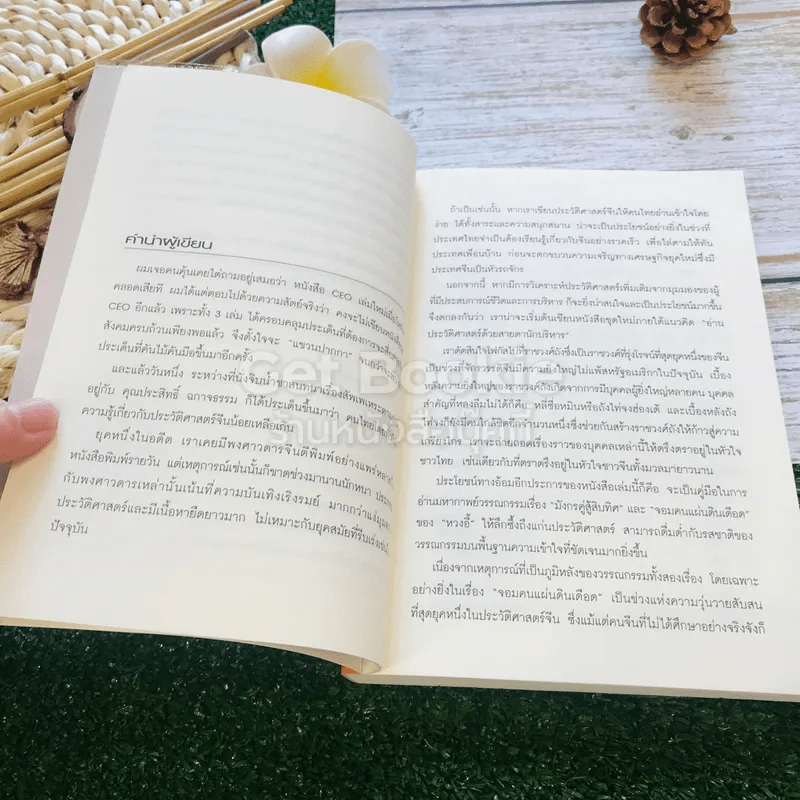 คำนำผู้เขียน
ผมเจอคนคุ้นเคยไต่ถามอยู่เสมอว่า หนังสือ CEO เล่มใหม่เมื่อไหร่
คลอดเสียที ผมได้แต่ตอบไปด้วยความสัตย์จริงว่า คงจะไม่เขียนหนังสือ
CEO อีกแล้ว เพราะทั้ง 3 เล่ม ได้ครอบคลุมประเด็นที่ต้องการจะสื่อ
สังคมครบถ้วนเพียงพอแล้ว จึงตั้งใจจะ "แขวนปากกา"
ประเด็นที่คันไม้คันมือขึ้นมาอีกครั้ง
และแล้ววันหนึ่ง ระหว่างที่นั่งจิบน้ำชาสนทนาเรื่องสัพเพเหระ
อยู่กับ คุณประสิทธิ์ ฉกาจธรรม ก็ได้ประเด็นขึ้นมาว่า คนไทย
ความรู้เกี่ยวกับประวัติศาสตร์จีนน้อยเหลือเกิน
ยุคหนึ่งในอดีต เราเคยมีพงศาวดารจีนตีพิมพ์อย่างแพร่หลาย
หนังสือพิมพ์รายวัน แต่เหตุการณ์เช่นนั้นก็ขาดช่วงมานานนักหนา
กับพงศาวดารเหล่านั้นเน้นที่ความบันเทิงเริงรมย์ มากกว่าแง่มุม
ประวัติศาสตร์และมีเนื้อหายืดยาวมาก ไม่เหมาะกับยุคสมัยที่รีบเร่ง
ปัจจุบัน
ถ้าเป็นเช่นนั้น หากเราเขียนประวัติศาสตร์จีนให้คนไทยอ่านเข้าใจโดย
ง่าย ได้ทั้งสาระและความสนุกสนาน น่าจะเป็นประโยชน์อย่างยิ่งในช่วงที่
ประเทศไทยจำเป็นต้องเรียนรู้เกี่ยวกับจีนอย่างรวดเร็ว เพื่อไล่ตามให้ทัน
ประเทศเพื่อนบ้าน ก่อนจะตกขบวนความเจริญทางเศรษฐกิจยุคใหม่ซึ่งมี
ประเทศจีนเป็นหัวรถจักร
นอกจากนี้ หากมีการวิเคราะห์ประวัติศาสตร์เพิ่มเติมจากมุมมองของผู้
ที่มีประสบการณ์ชีวิตและการบริหาร ก็จะยิ่งน่าสนใจและเป็นประโยชน์มากขึ้น
จึงตกลงกันว่า เราน่าจะเริ่มต้นเขียนหนังสือชุดใหม่ภายใต้แนวคิด "อ่าน
ประวัติศาสตร์ด้วยสายตานักบริหาร"
เราตัดสินใจโฟกัสไปที่ราชวงศ์ถังซึ่งเป็นราชวงศ์ที่รุ่งโรจน์ที่สุดยุคหนึ่งของจีน
เป็นช่วงที่จักรวรรดิจีนมีความยิ่งใหญ่ไม่แพ้สหรัฐอเมริกาในปัจจุบัน เบื้อง
หลังความยิ่งใหญ่ของราชวงศ์ถังเกิดจากการมีบุคคลผู้ยิ่งใหญ่หลายคน บุคคล
สำคัญที่หลงลืมไม่ได้ก็คือ หลี่ซื่อหมินหรือถังไท่จงฮ่องเต้ และเบื้องหลังถัง
ไท่จงยังมีคนใกล้ชิดอีกจำนวนหนึ่งซึ่งช่วยกันสร้างราชวงศ์ถังให้ก้าวสู่ความ
เกรียงไกร เราจะถ่ายถอดเรื่องราวของบุคคลเหล่านี้ให้ตรึงตราอยู่ในหัวใจ
ชาวไทย เช่นเดียวกับที่ตราตรึงอยู่ในหัวใจชาวจีนทั้งมวลมายาวนาน
ประโยชน์ทางอ้อมอีกประการของหนังสือเล่มนี้ก็คือ จะเป็นคู่มือในการ
อ่านมหากาพย์วรรณกรรมเรื่อง "มังกรคู่สู้สิบทิศ" และ "จอมคนแผ่นดินเดือด"
ของ "หวงอี้" ให้ลึกซึ้งถึงแก่นประวัติศาสตร์ สามารถดื่มด่ำกับรสชาติของ
วรรณกรรมบนพื้นฐานความเข้าใจที่ชัดเจนมากยิ่งขึ้น
เนื่องจากเหตุการณ์ที่เป็นภูมิหลังของวรรณกรรมทั้งสองเรื่อง โดยเฉพาะ
อย่างยิ่งในเรื่อง "จอมคนแผ่นดินเดือด" เป็นช่วงแห่งความวุ่นวายสับสน
ที่สุดยุคหนึ่งในประวัติศาสตร์จีน ซึ่งแม้แต่คนจีนที่ไม่ได้ศึกษาอย่างจริงจังก็